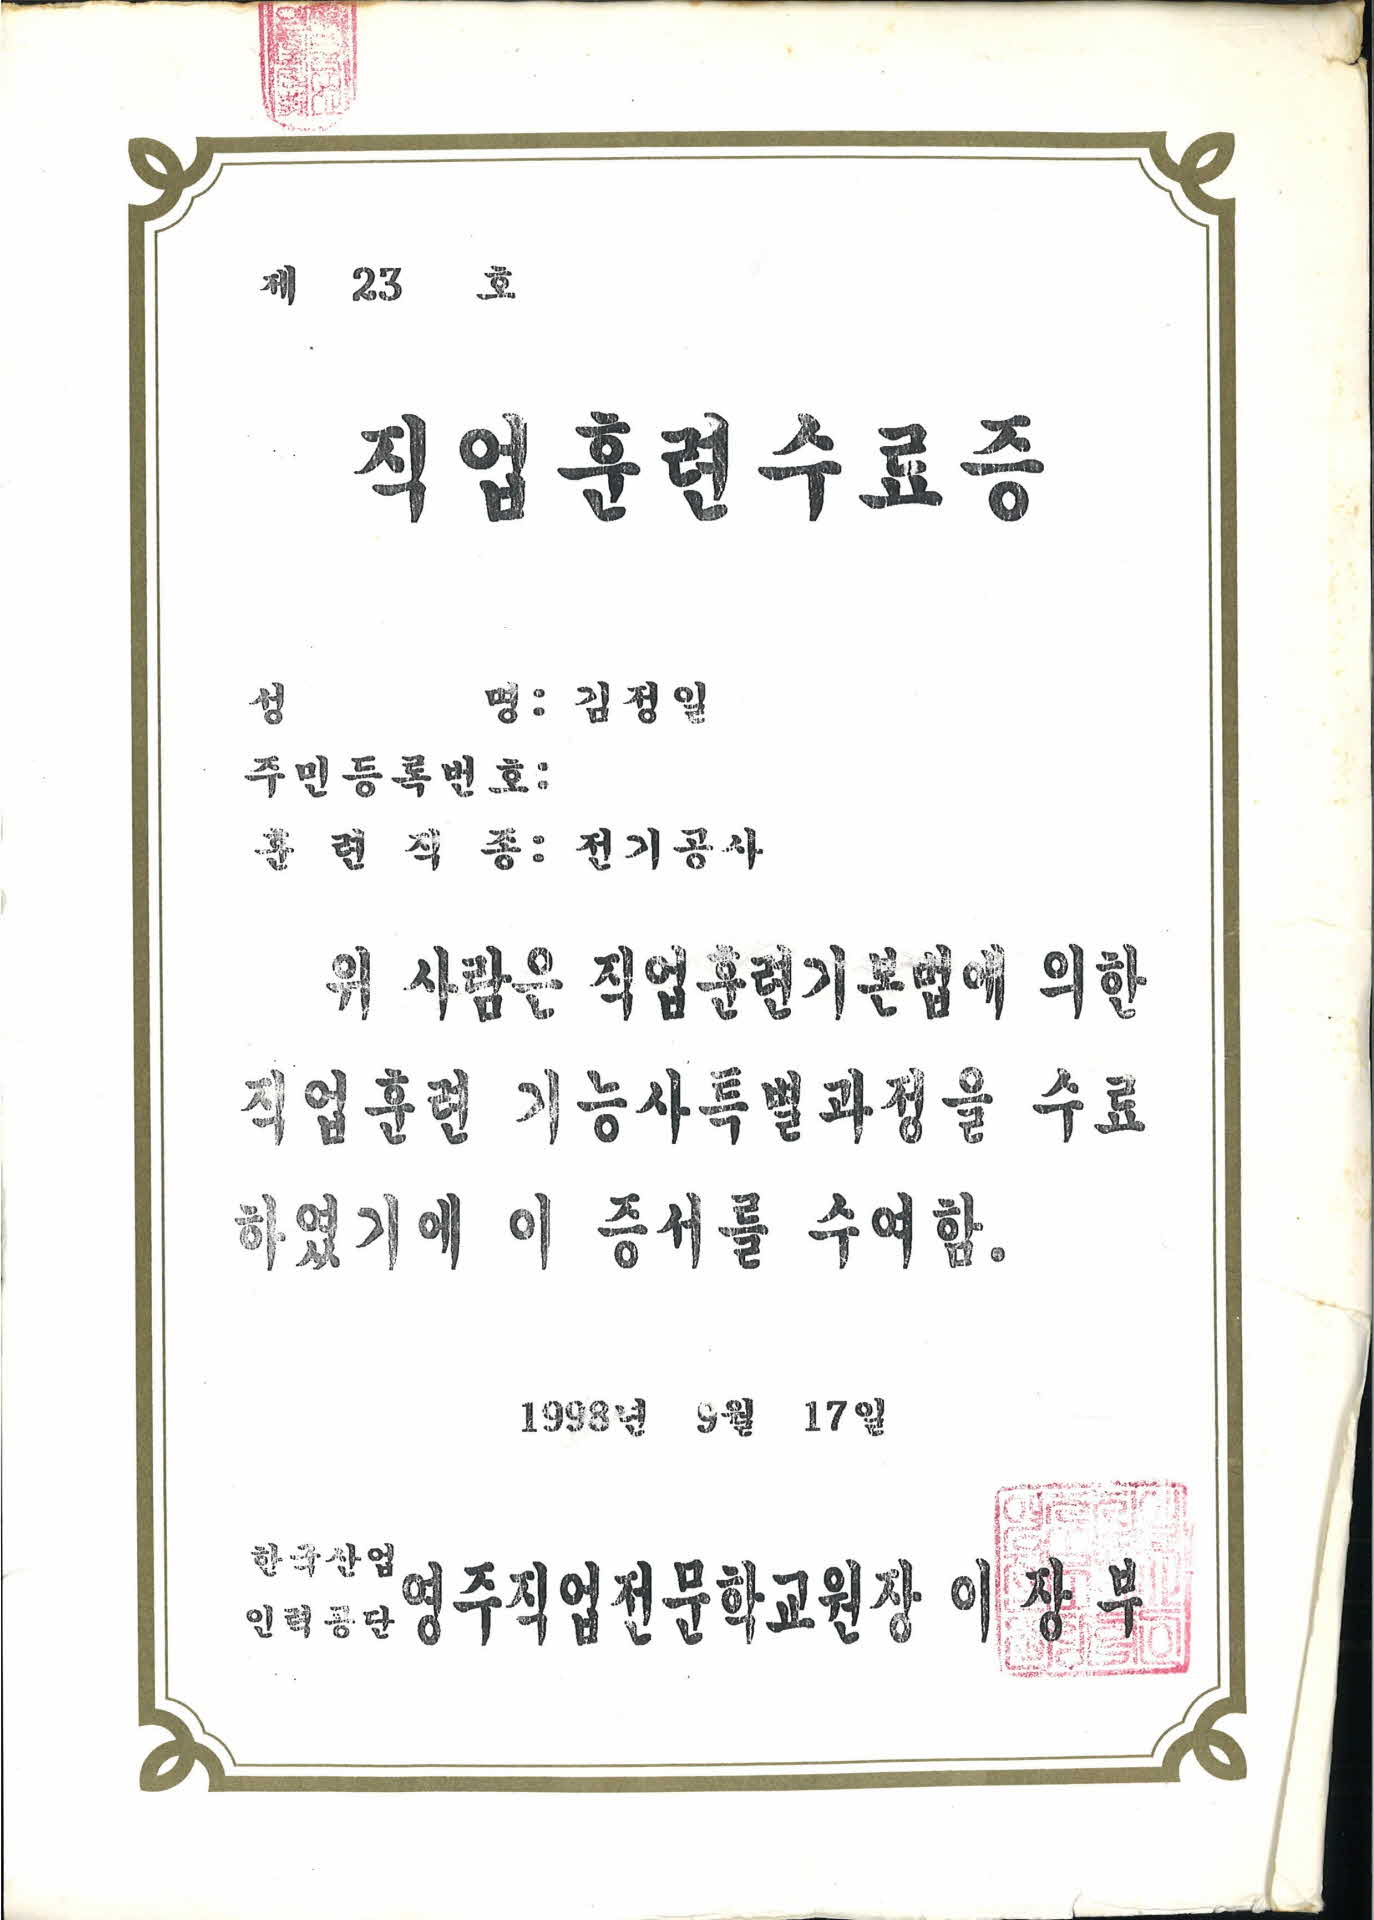 제 23 호
직업훈련수료증
성 명: 김정일
주민등록번호:
훈련직종: 전기공사
위 사람은 직업훈련기본법에 의한
직업훈련 기능사특별과정을 수료
하였기에 이 증서를 수여함.
1998년 9월 17일
한국산업
인력공단 영주직업전문학교원장 이장부